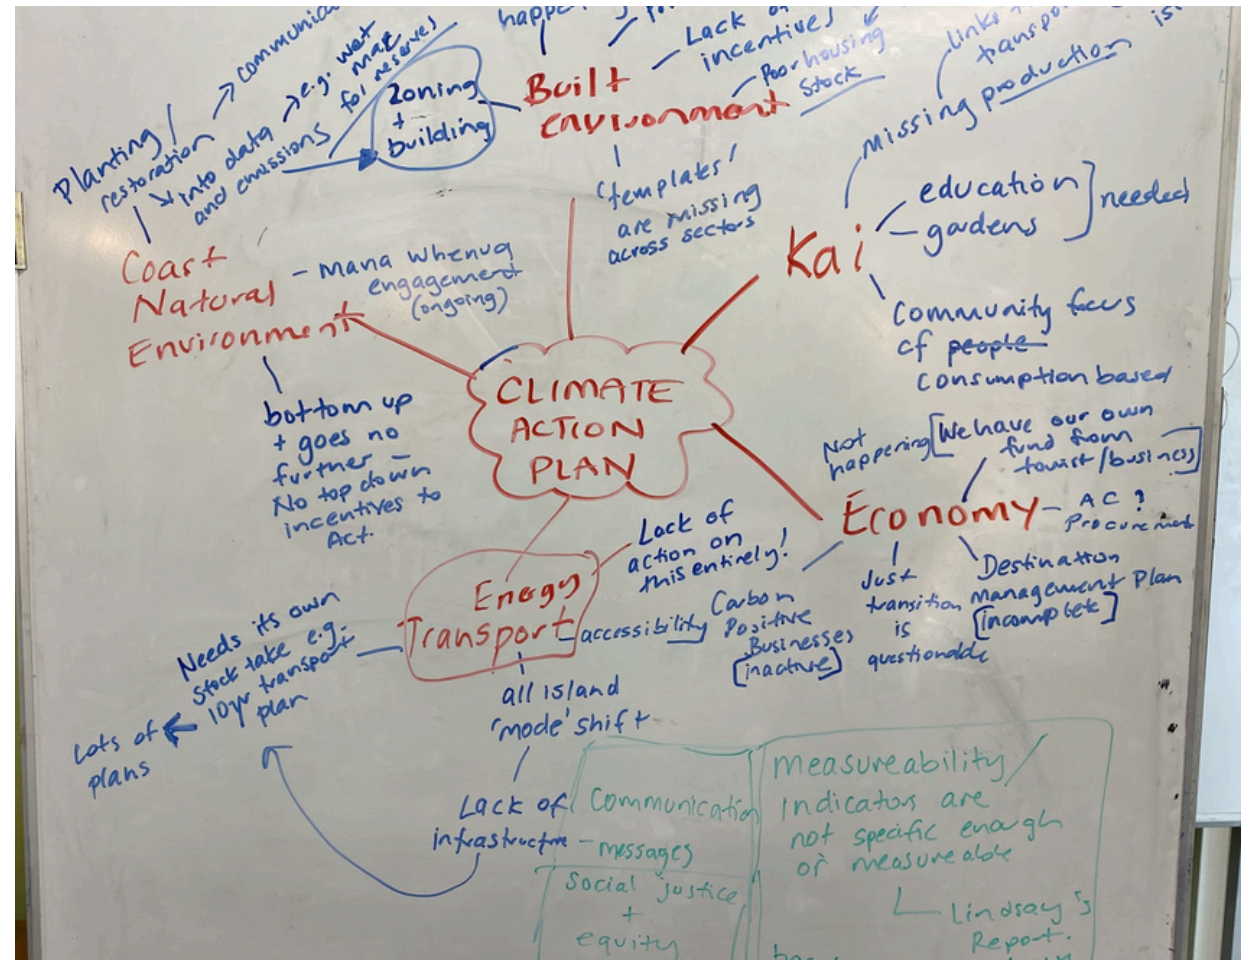 Planting/
restoration
into data
and emissions
e.g. wet
mae
for reserves
Zoning
+
building
Built
environment
Lack of
incentives
Poor housing
Stock
'templates'
are missing
across sectors
links
missing production
Kai
education
gardens
needed
Community focus
cf people
consumption based
Coast
Natural
Environment
- Mana Whenua
engagement
(ongoing)
bottom up
+ goes no
further -
No top down
incentives to
Act.
CLIMATE
ACTION
PLAN
Not
happening
[We have our own
fund from
tourist/business]
Economy
- AC ?
Procurement
Destination
management Plan
[incomplete]
Just
transition
is
questionable
Carbon
Positive
Businesses
[inactive]
Energy
Transport
Lack of
action on
this entirely!
- accessibility
Needs its own
Stock take e.g.
10yr transport
plan
Lots of
plans
all island
'mode' shift
Lack of
infrastructure
Communication
- messages
Social justice
+
equity
Measureability/
Indicators are
not specific enough
or measureable
Lindsay's
Report.